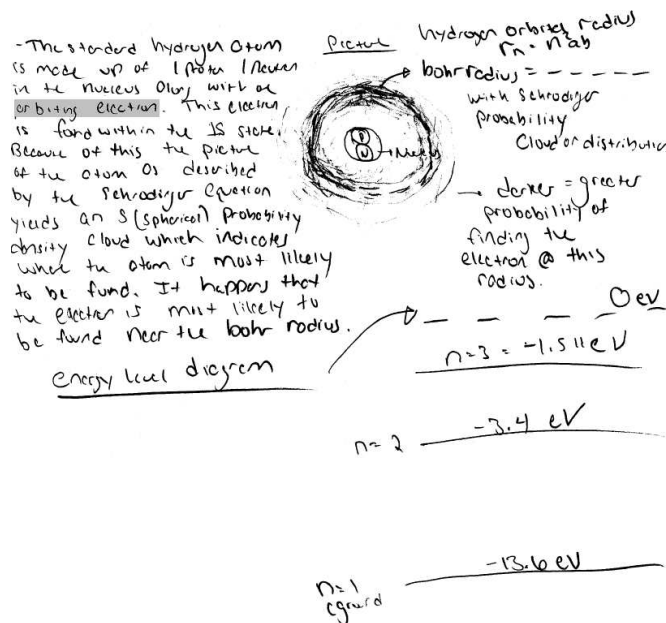 - The standard hydrogen atom
is made up of 1 proton 1 neutron
in the nucleus along with an
orbiting electron. This electron
is found within the 1S state.
Because of this the picture
of the atom as described
by the Schrodiger equation
yields an S (spherical) probability
density cloud which indicates
where the atom is most likely
to be fund. It happens that
the electron is most likely to
be found near the bohr radius.
Picture
hydrogen orbital radius
bohr radius = - - - - - -
with Schrodiger
probability
Cloud or distribution
Nucleus
darker = greater
probability of
finding the
electron @ this
radius.
energy level diagram
0 eV
n=3 = -1.511 eV
n=2 -3.4 eV
n=1 -13.6 eV